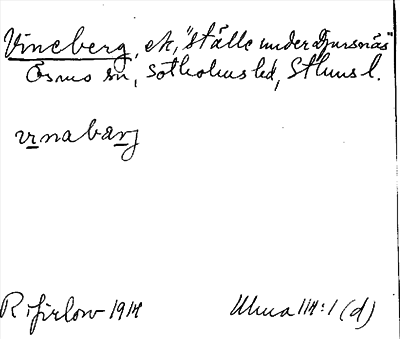 Vineberg, ek, "ställe under Djursnäs"
Ösmo sn, Sotholms hd, Sthms l.
vinabærj
R. 1914
114:1 (d)